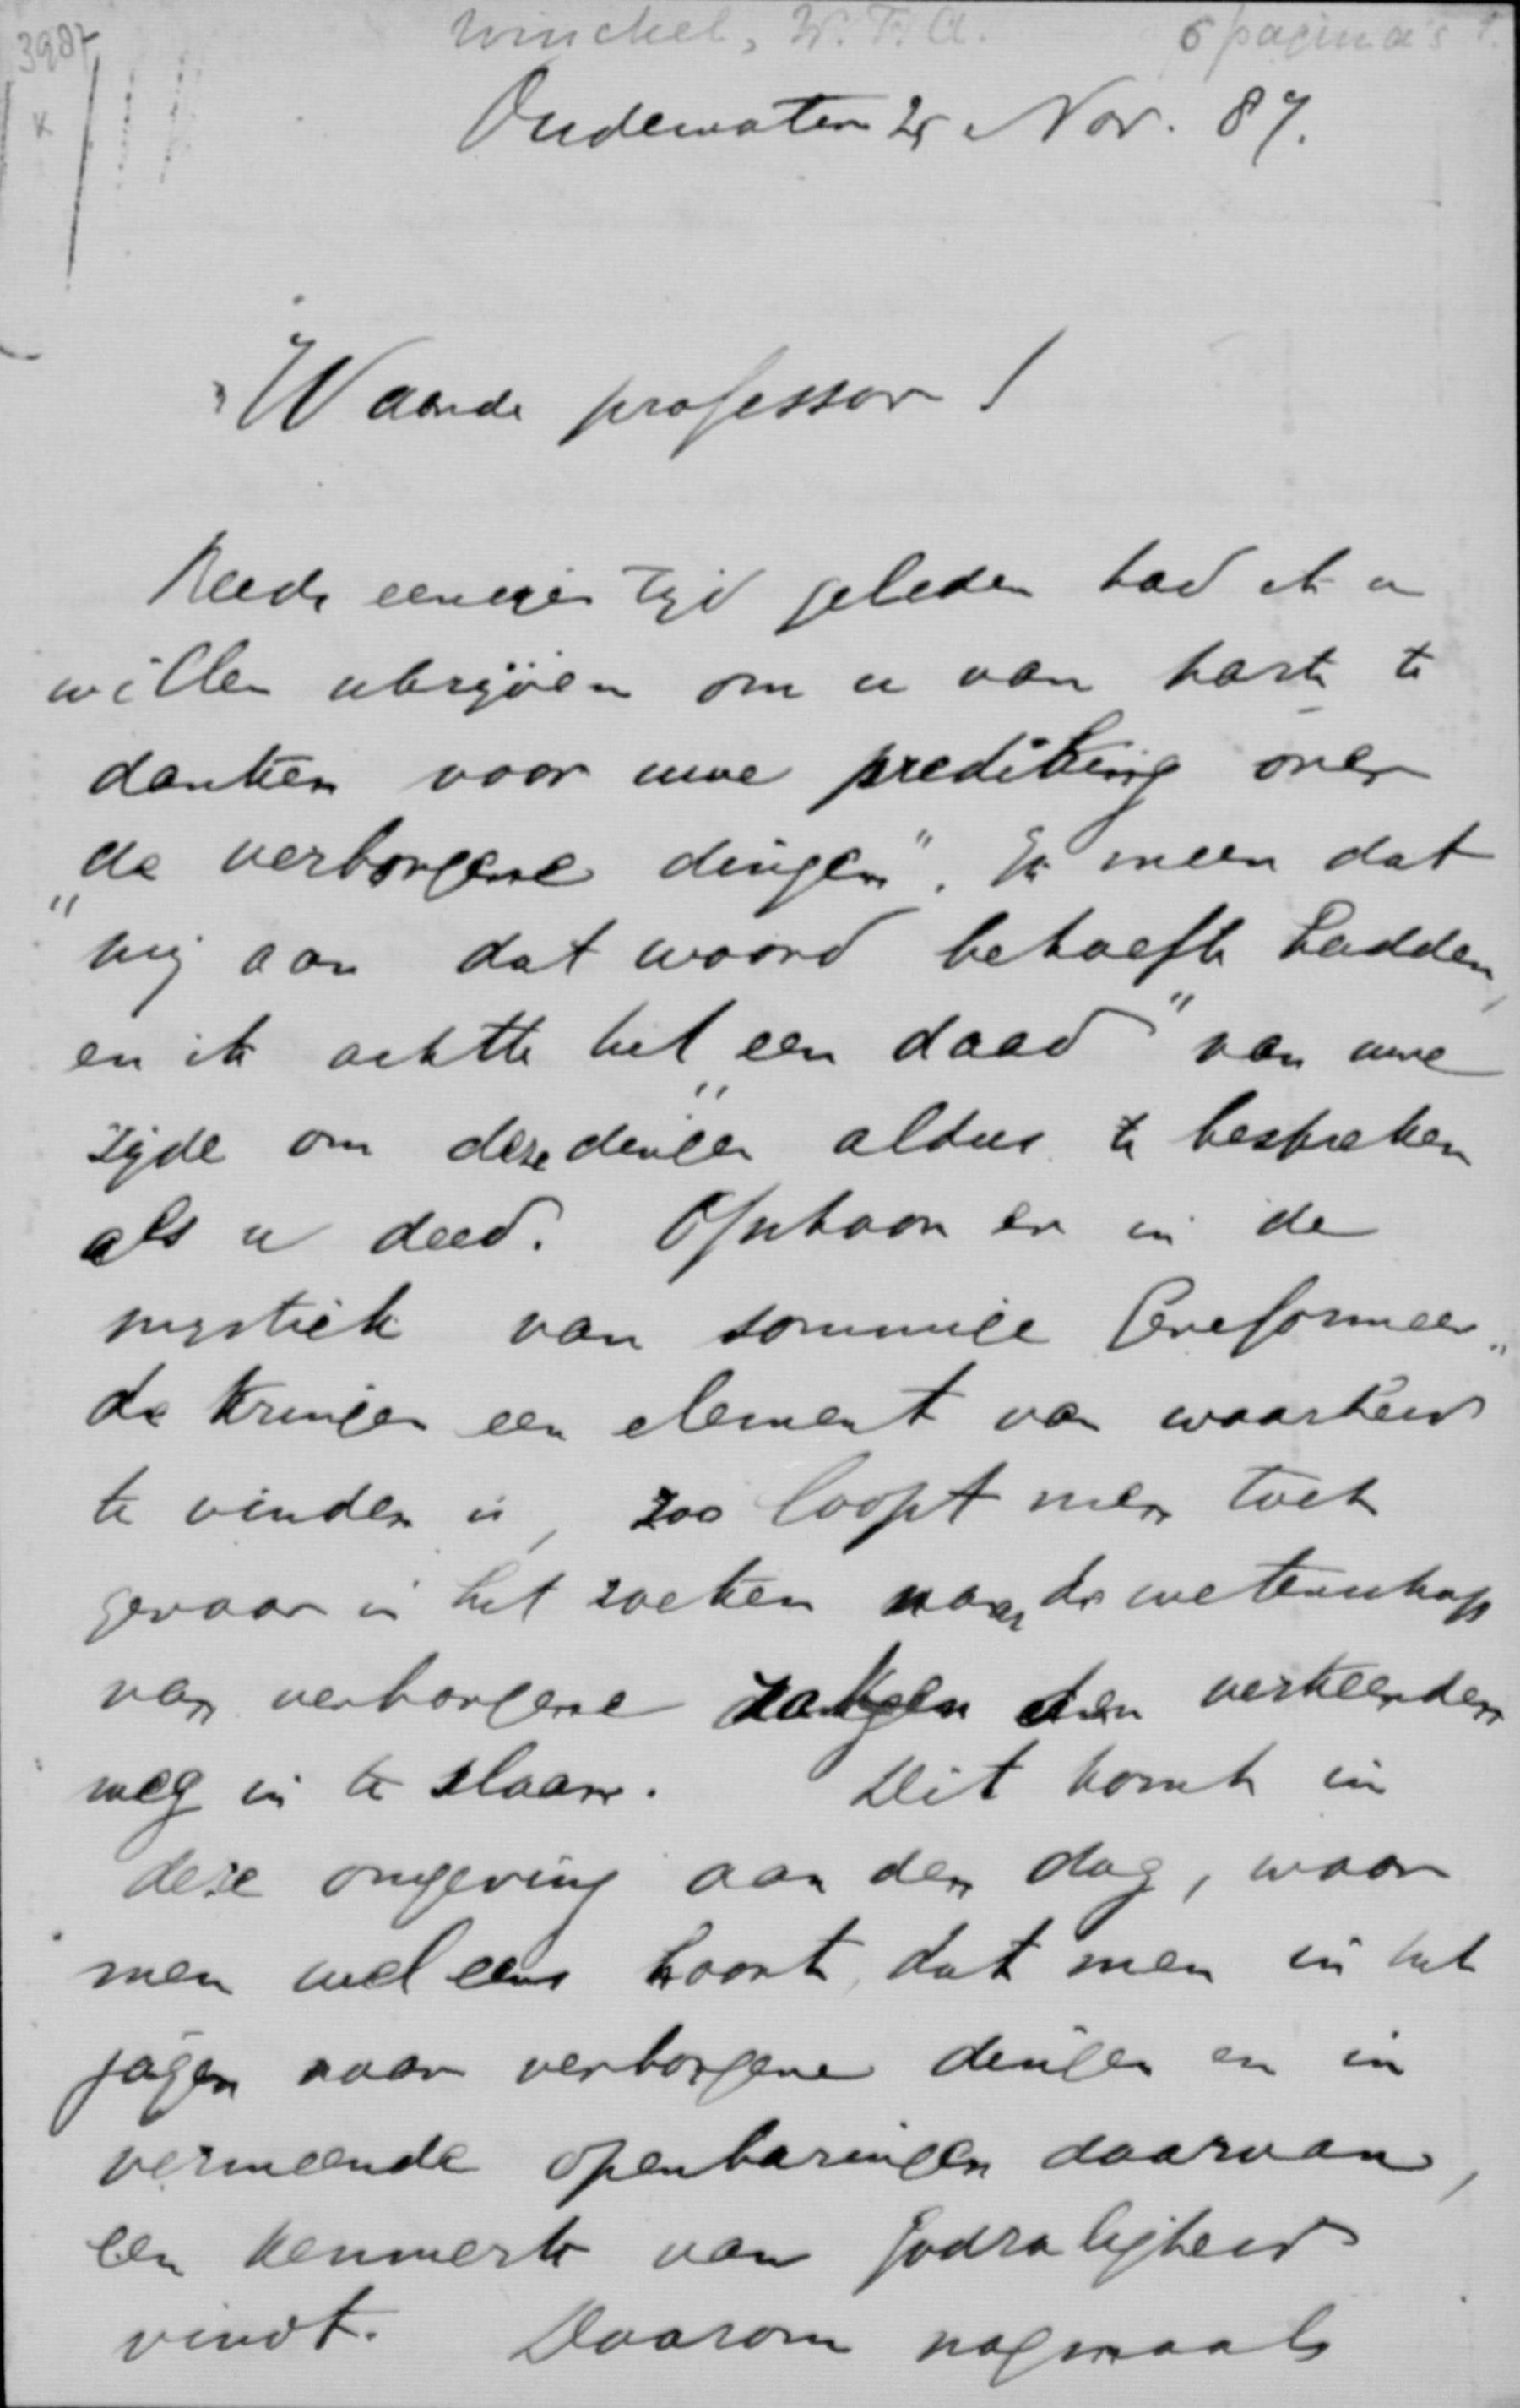 3987
Winckel, W.F.A. 6 pagina's
Oudewater 25 Nov. 87.
Waarde professor!
Reeds eenigen tijd geleden had ik u
willen schrijven om u van harte te
danken voor uwe prediking over
„de verborgene dingen". Ik meen dat
wij aan dat woord behoefte hadden,
en ik achtte het „een daad" van uwe
zijde om deze dingen aldus te bespreken
als u deed. Ofschoon er in de
mystiek van sommige Gereformeer„
de kringen een element van waarheid
te vinden is, zoo loopt men toch
gevaar in het zoeken naar de wetenschap
van verborgene zaken den verkeerden
weg in te slaan. Dit komt in
deze omgeving aan den dag, waar
men wel eens hoort, dat men in het
jagen naar verborgene dingen en in
vermeende openbaringen daarvan,
een kenmerk van godzaligheid
vindt. Daarom nogmaals